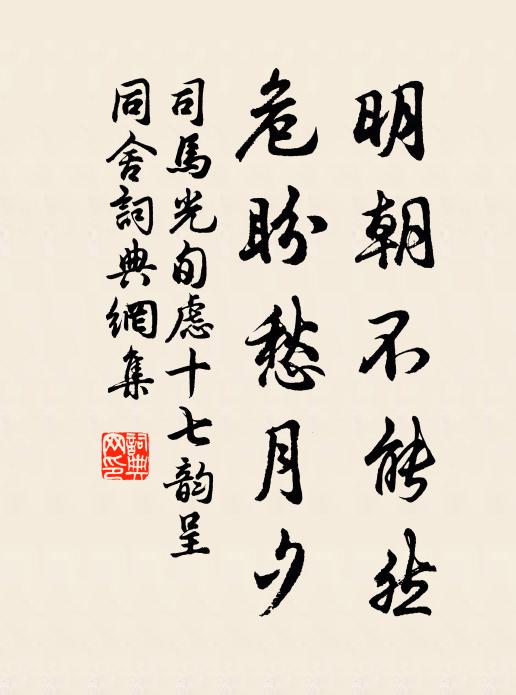 明朝不能然
危盼愁月夕
司馬光旬慮十七韵呈
同舍詞典網集
詞典
网印